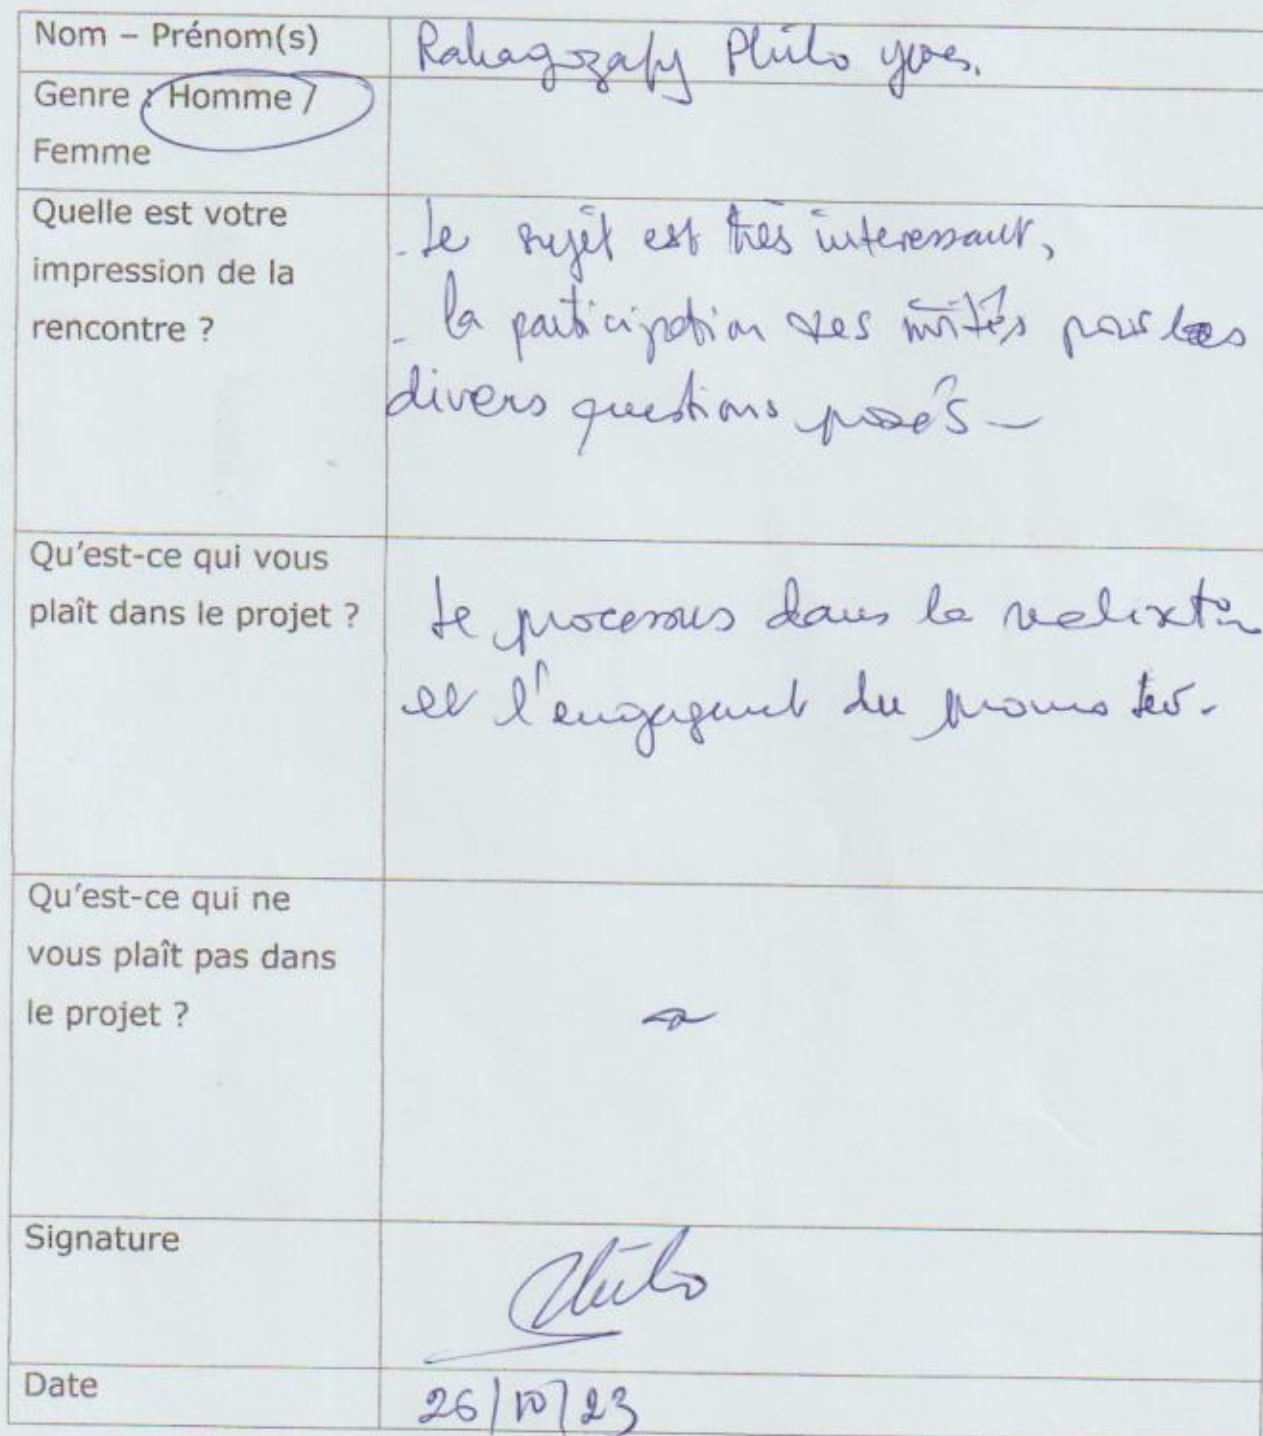 Nom – Prénom(s)
Philo Yves.
Genre : Homme /
Femme
Quelle est votre
impression de la
rencontre ?
- Le sujet est très interessant,
- la participation des invités par les
divers questions posés -
Qu'est-ce qui vous
plaît dans le projet ?
Le processus dans la
et l'engagement du
Qu'est-ce qui ne
vous plaît pas dans
le projet ?
Signature
Philo
Date
26/10/23